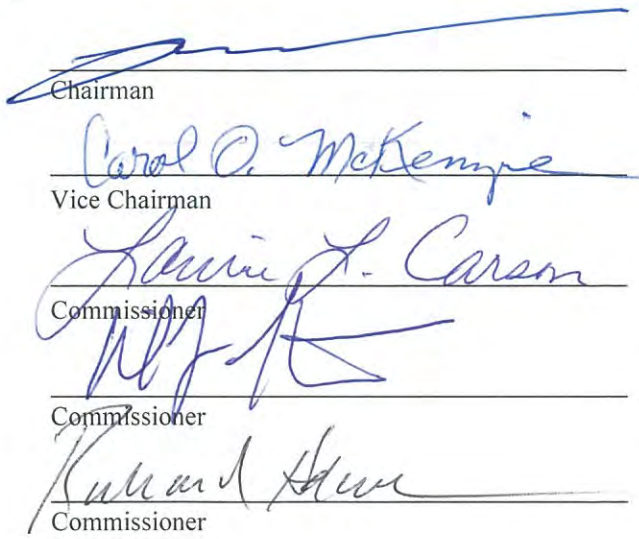 Chairman
Carol O. McKenzie
Vice Chairman
Laurie L. Carson
Commissioner
Commissioner
Richard
Commissioner